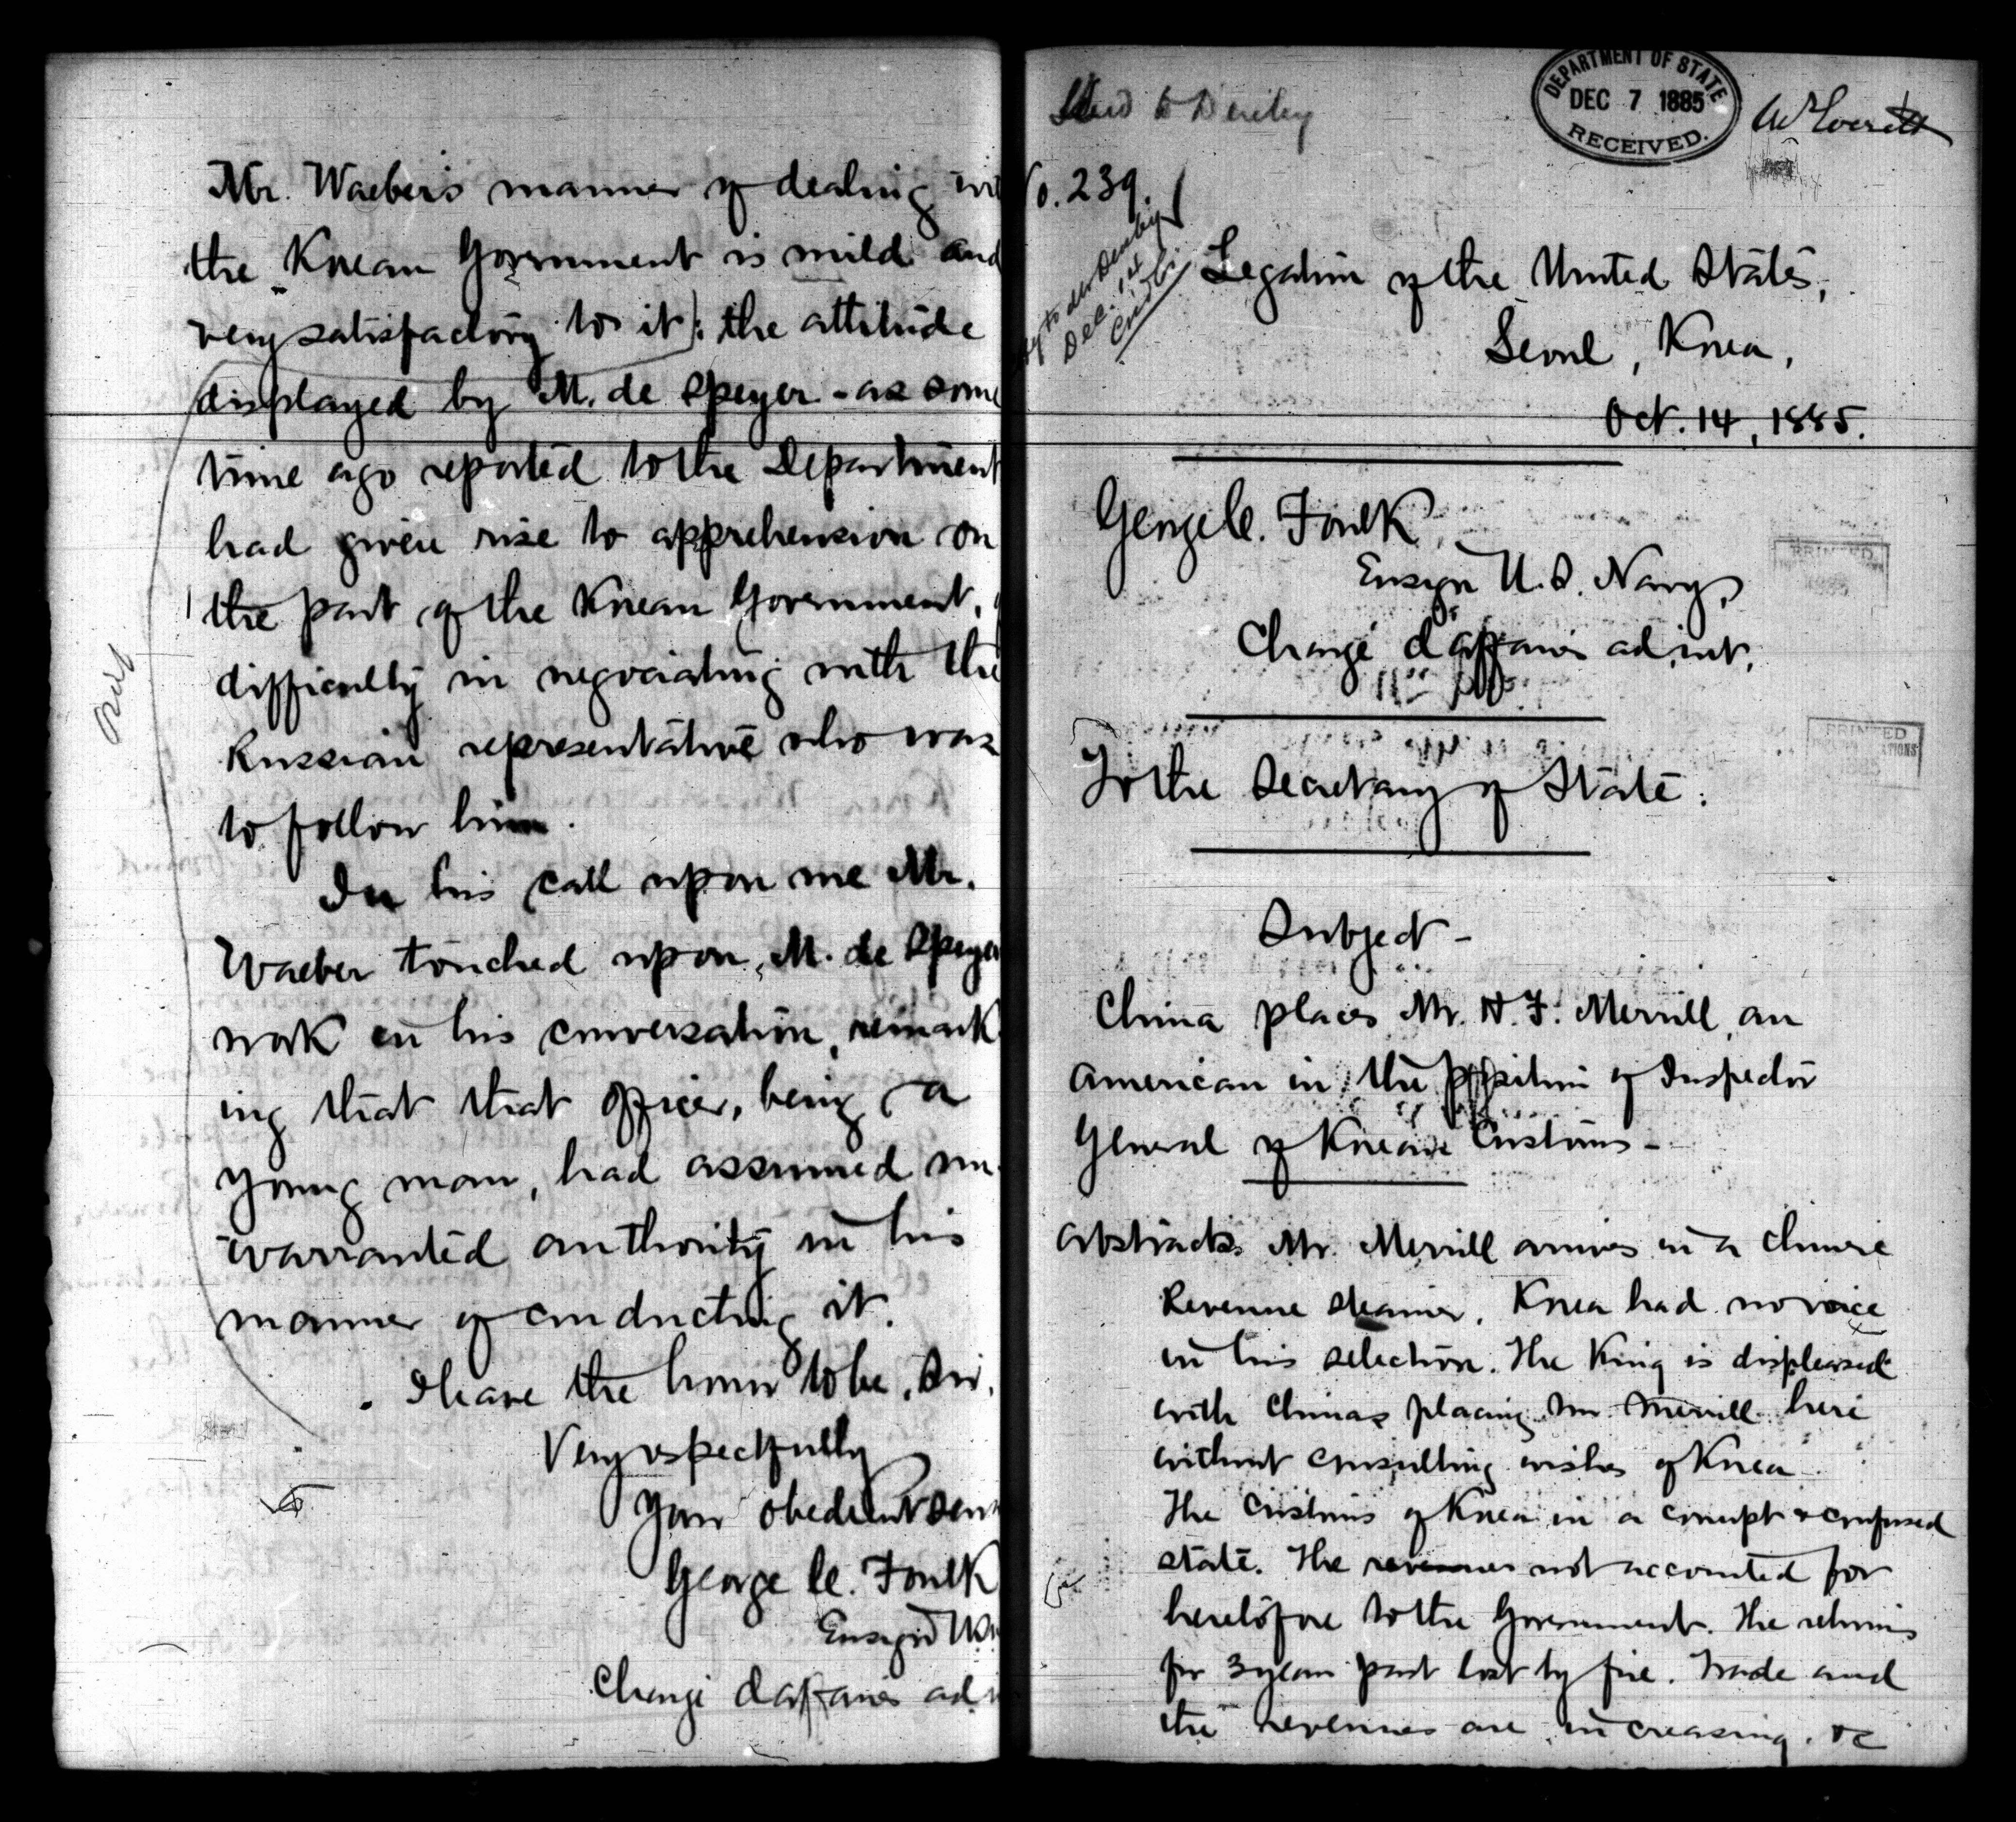 Mr. Waeber's manner of dealing wi
the Korean Government is mild and
very satisfactory to it; the attitude
displayed by M. de Speyer - as some
time ago reported to the Department
had given rise to apprehension on
the part of the Korean Government,
difficulty in negociating with the
Russian representative who was
to follow him.
In his call upon me Mr.
Waeber touched upon M. de Speyer
work in his conversation, remark
ing that that officer, being a
young man, had assumed un-
warranted authority in his
manner of conducting it.
I have the honor to be, Sir,
Very respectfully
Your obedient serv
George C. Foulk
Ensign U.S.
Chargé d'affaires ad i
to Denby
DEPARTMENT OF STATE
DEC 7 1885
RECEIVED.
No. 239.
to Mr Denby
Dec. 14
Legation of the United States,
Seoul, Korea,
Oct. 14, 1885.
George C. Foulk,
Ensign U.S. Navy,
Chargé d'affaires ad. int.
PRINTED
To the Secretary of State.
PRINTED
Subject -
China places Mr. H. F. Merrill, an
American in the position of Inspector
General of Korean Customs -
Abstract. Mr. Merrill arrives in a Chinese
Revenue steamer. Korea had no voice
in his selection. The King is displeased
with Chinas placing Mr. Merrill here
without consulting wishes of Korea.
The Customs of Korea in a corrupt & confused
state. The revenues not accounted for
heretofore to the Government. The returns
for 3 years past lost by fire. Trade and
the revenues are increasing. &c